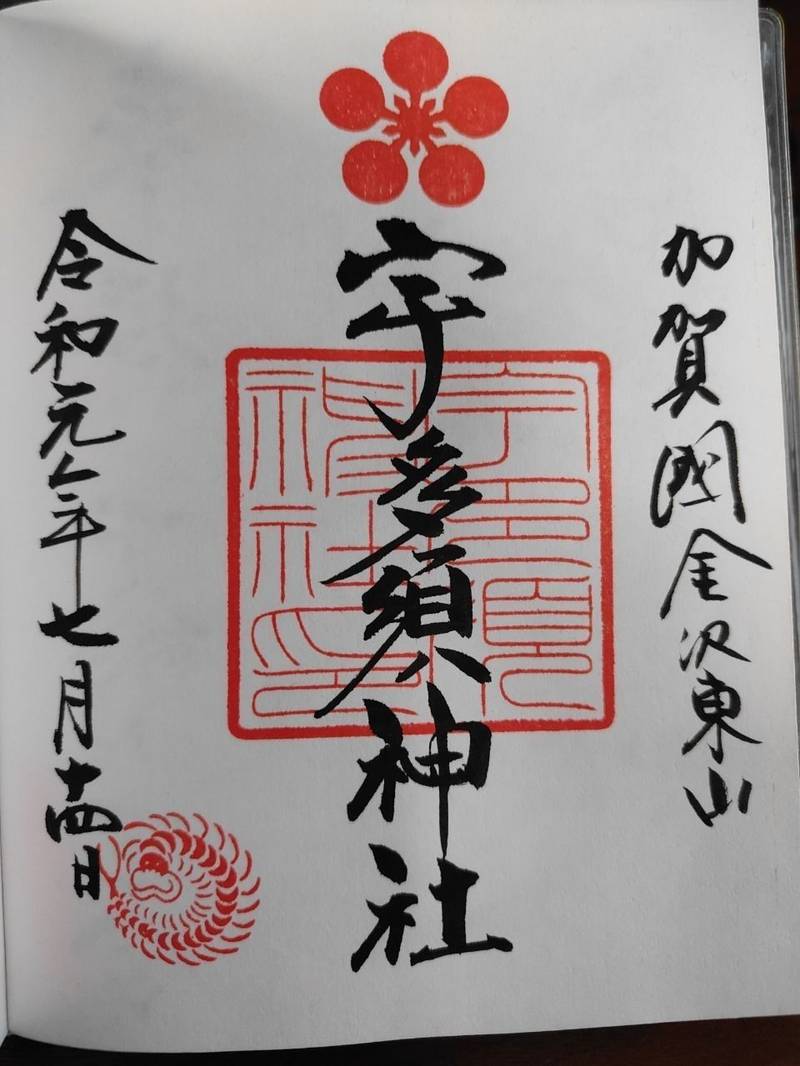 加賀國金沢東山
宇多須神社
宇多須神社印
令和元年七月十四日